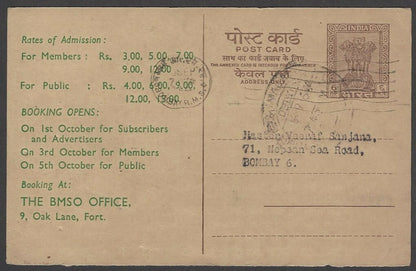 Rates of Admission:
For Members: Rs. 3.00, 5.00, 7.00,
9.00, 12.00
For Public : Rs. 4.00, 6.00, 9.00,
12.00, 15.00.
BOOKING OPENS:
On 1st October for Subscribers
and Advertisers
On 3rd October for Members
On 5th October for Public
Booking At:
THE BMSO OFFICE,
9, Oak Lane, Fort.
पोस्ट कार्ड
POST CARD
साथ का कार्ड जवाब के लिए
THE ANNEXED CARD IS INTENDED FOR THE ANSWER
केवल पता
ADDRESS ONLY
INDIA
भारत
Sanjana,
71, Nepean Sea Road,
BOMBAY 6.